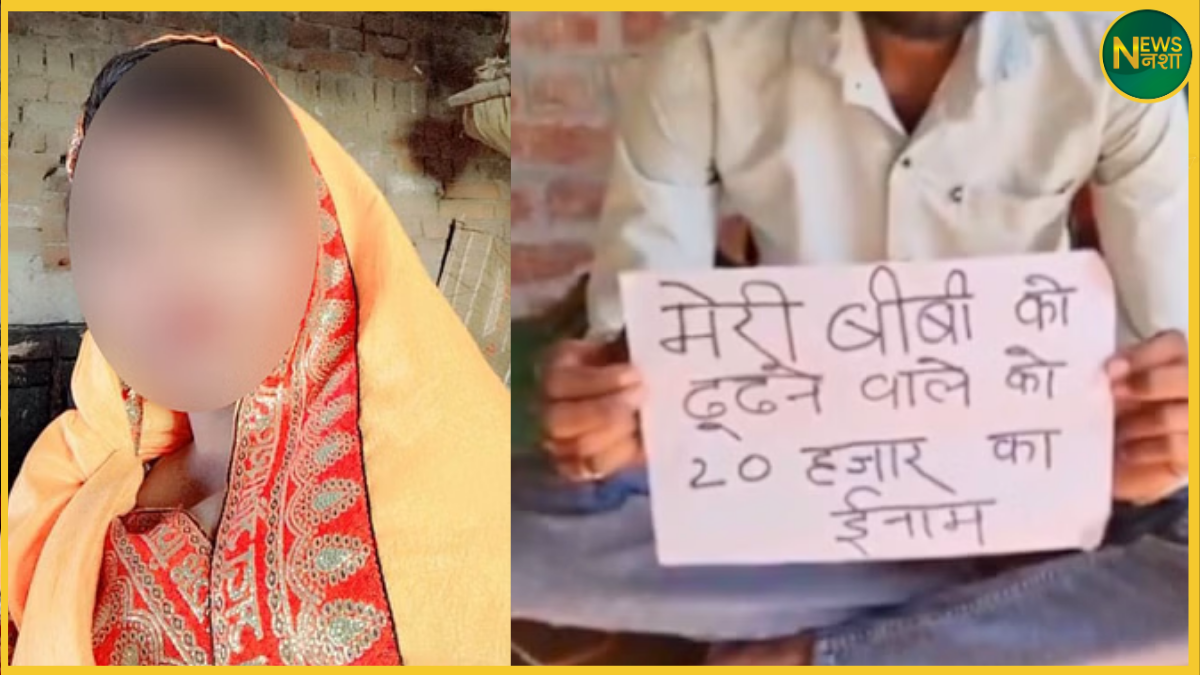 NEWS
नशा
मेरी बीबी को
ढूढने वाले को
20 हजार का
ईनाम